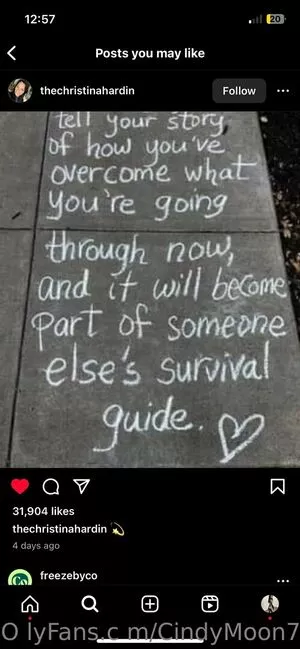 12:57
20
Posts you may like
thechristinahardin
Follow
tell your story
of how you've
overcome what
you're going
through now,
and it will become
part of someone
else's survival
guide.
31,904 likes
thechristinahardin
4 days ago
freezebyco
O lyFans.c m/CindyMoon7